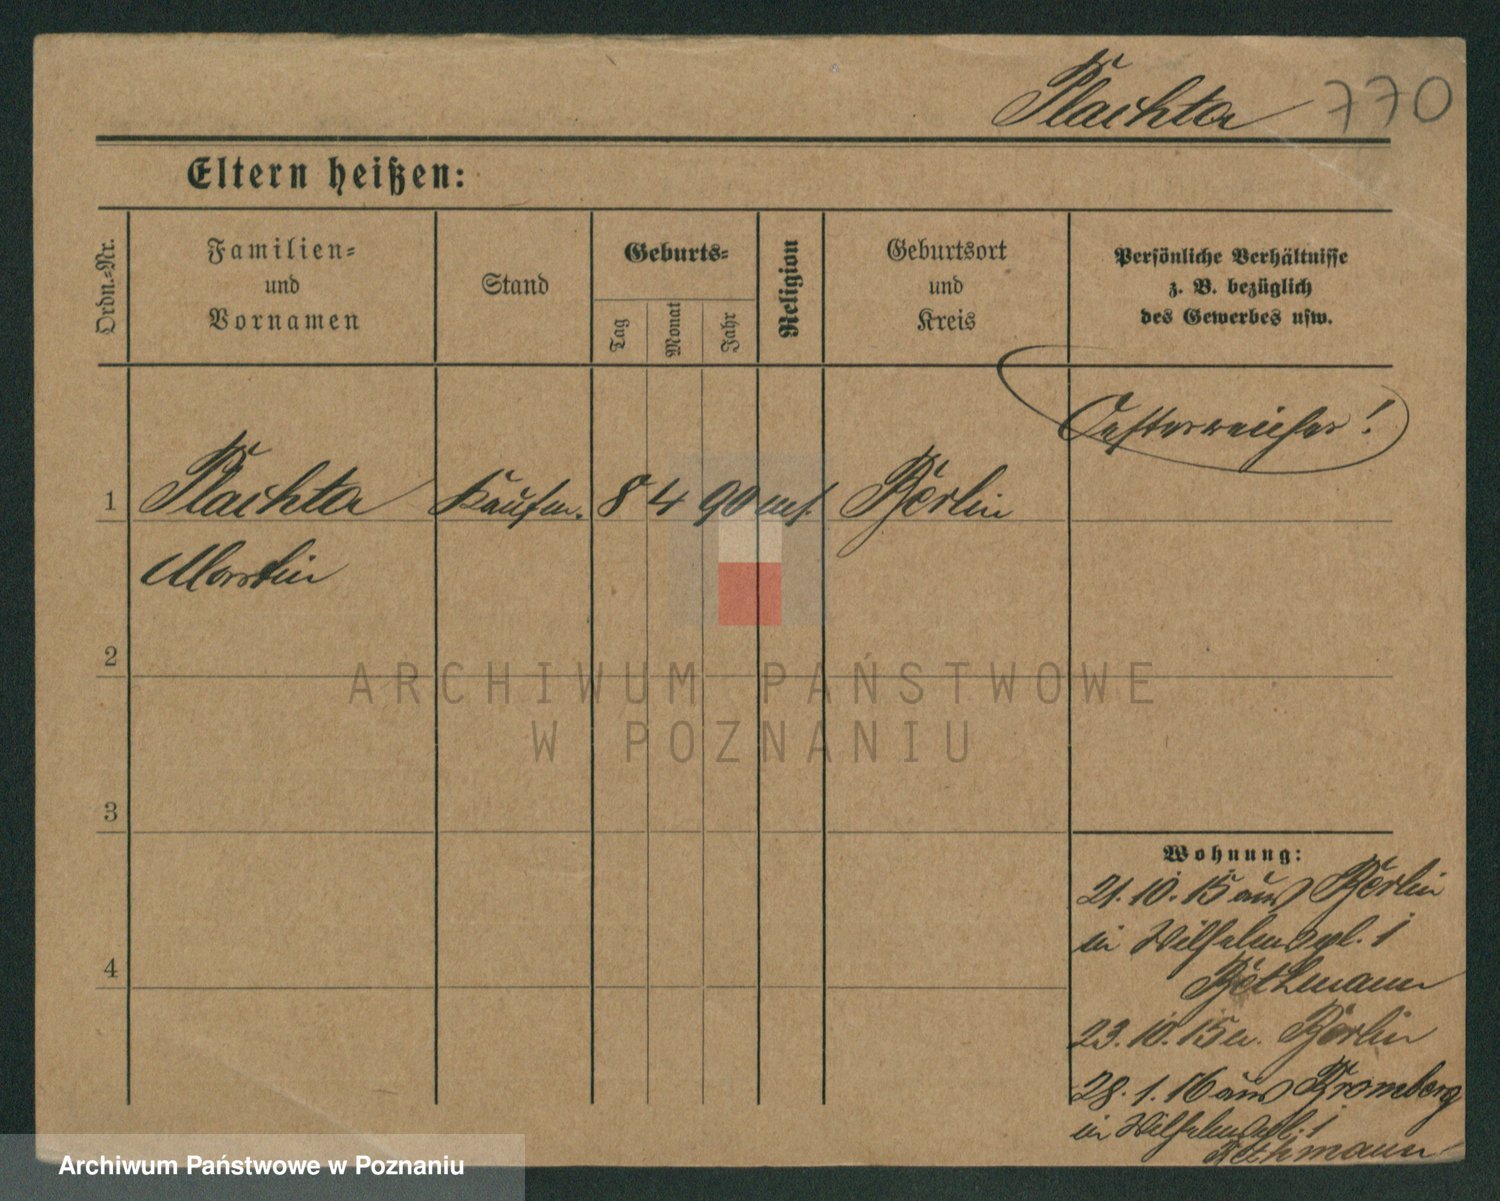 Plachta 770
Eltern heißen:
Ordn.-Nr.
Familien-
und
Vornamen
Stand
Geburts-
Tag
Monat
Jahr
Religion
Geburtsort
und
Kreis
Persönliche Verhältnisse
z. B. bezüglich
des Gewerbes usw.
Oesterreicher!
1 Plachta Kaufm. 8 4 90 mos. Berlin
Martin
2
3
4
Wohnung:
21.10.15 aus Berlin
in Wilhelmspl. 1
Bethmann
23.10.15 n. Berlin
28.1.16 aus Bromberg
in Wilhelmspl. 1
Bethmann
ARCHIWUM PAŃSTWOWE
W POZNANIU
Archiwum Państwowe w Poznaniu